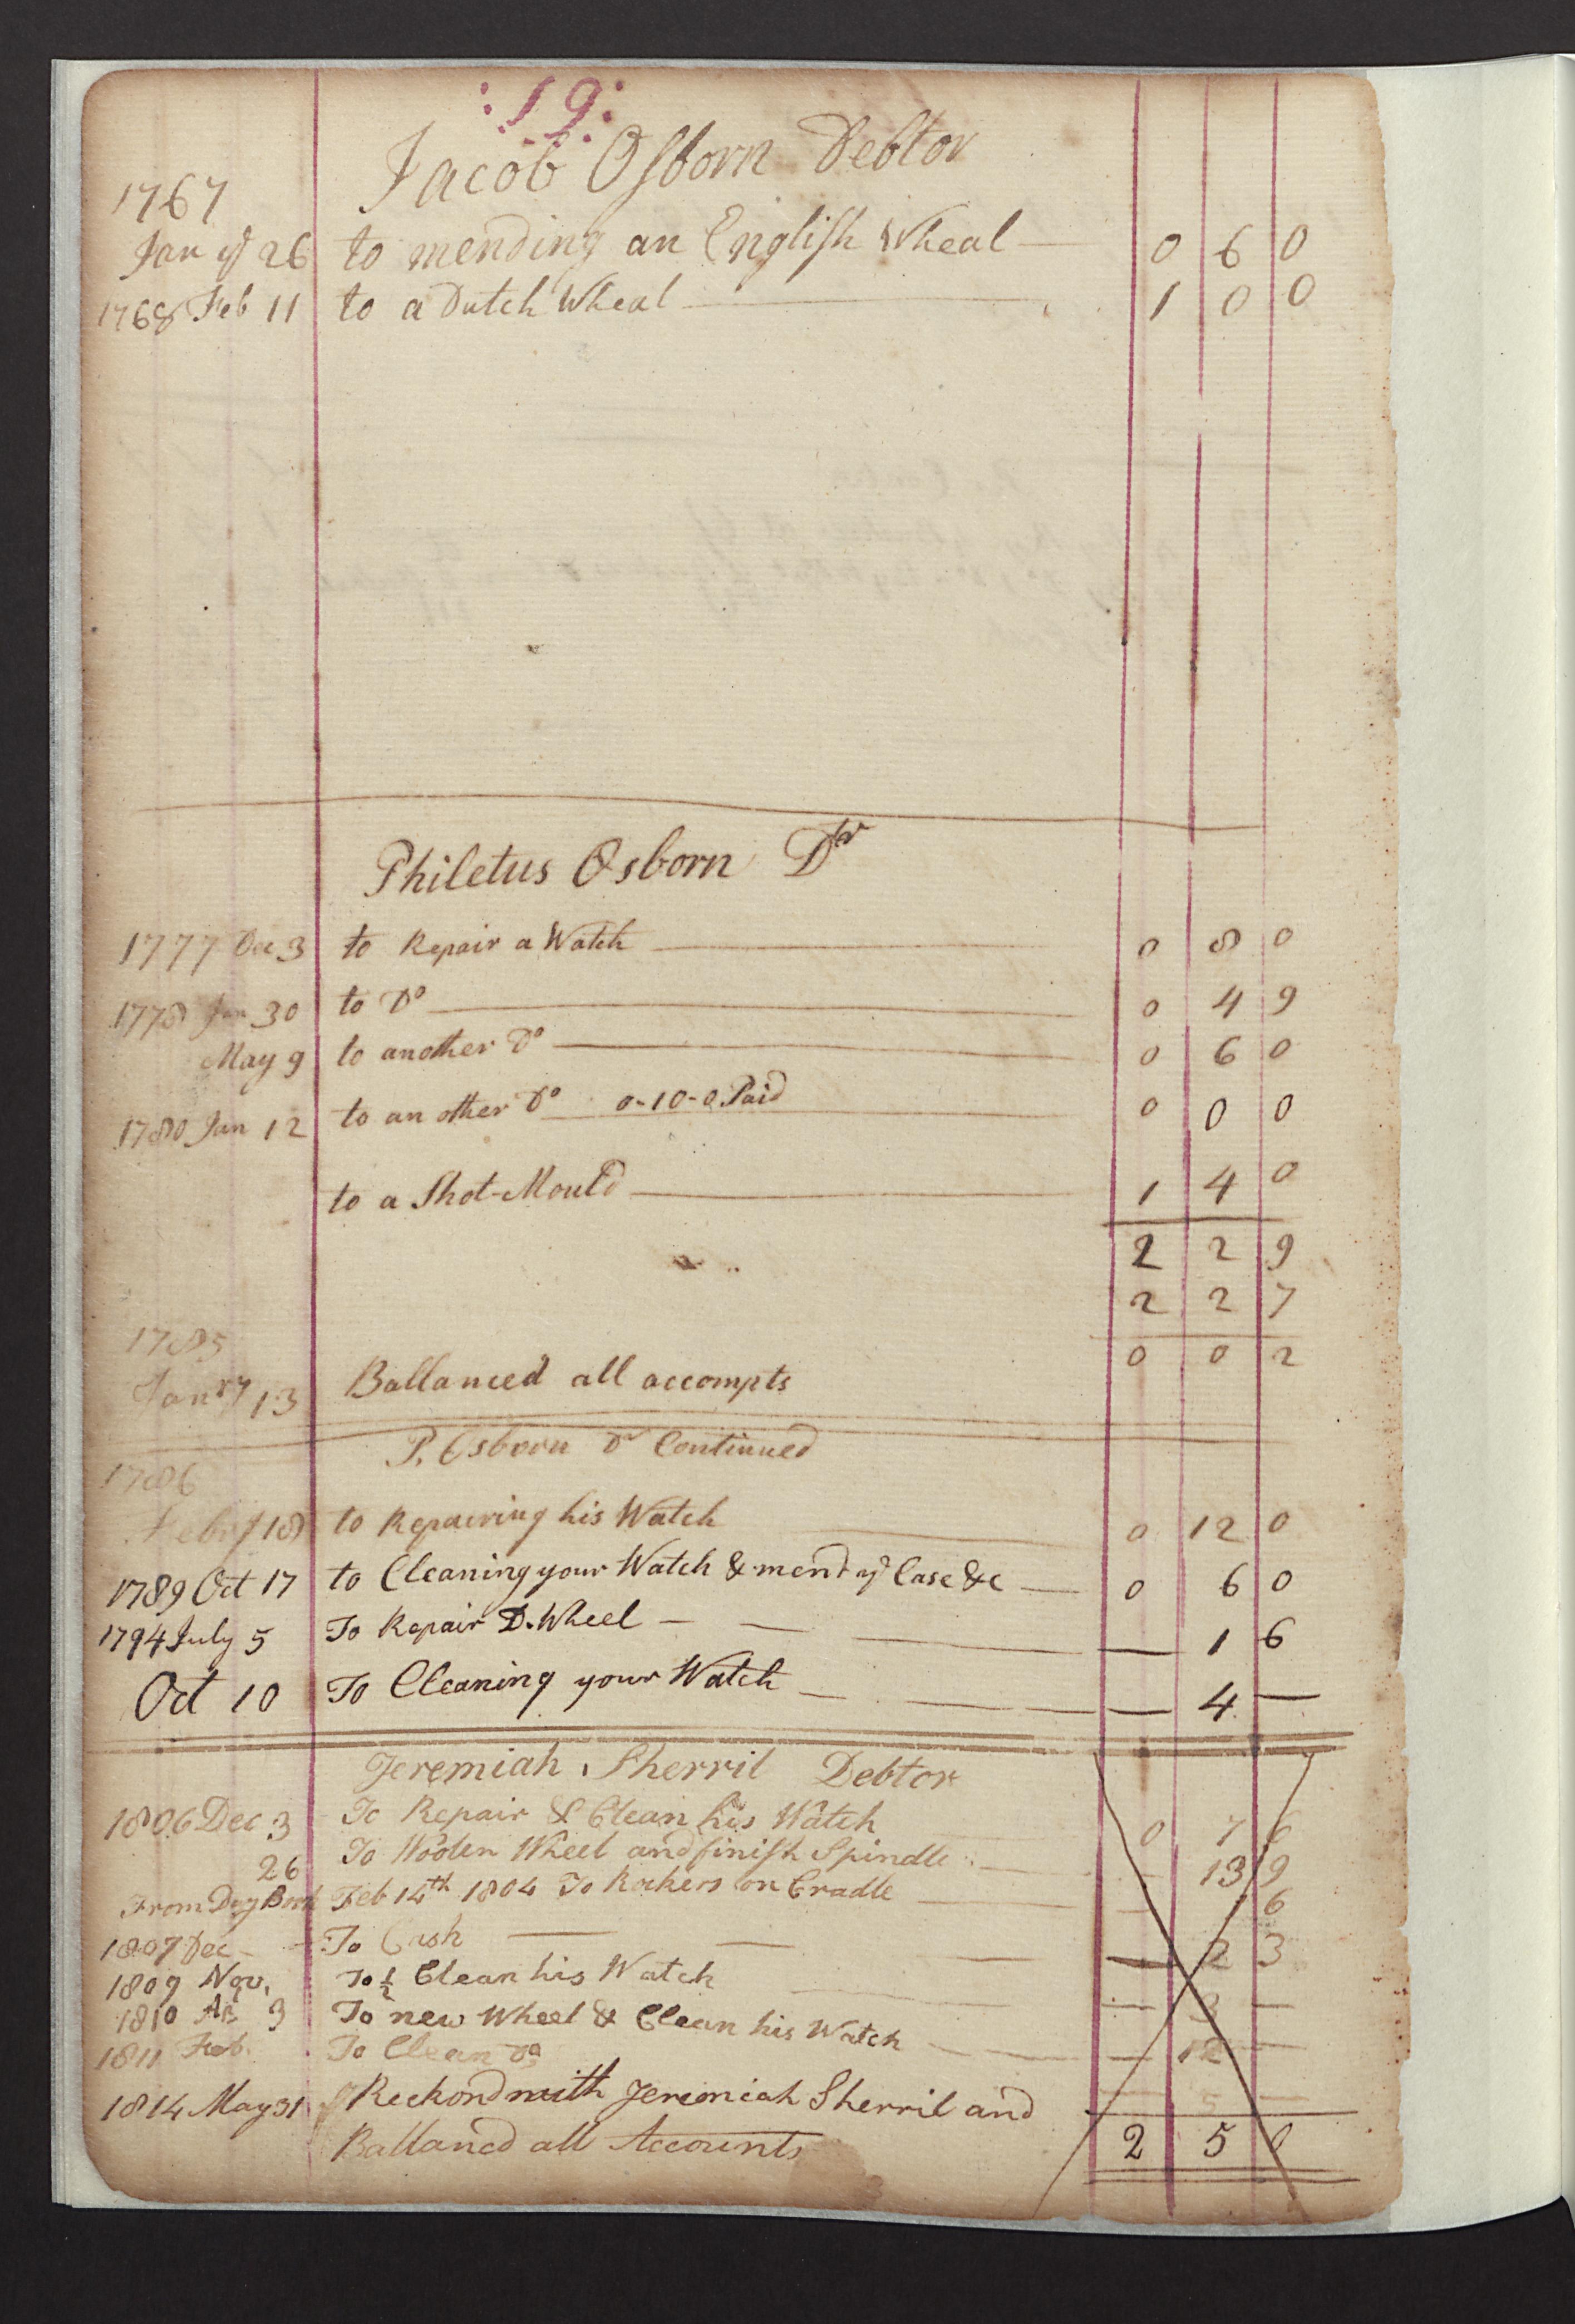 :19:
Jacob Osborn Debtor
1767
Jan ye 26 to mending an English Wheal — 0 6 0
1768 Feb 11 to a Dutch Wheal — 1 0 0
Philetus Osborn Dr
1777 Dec 3 to Repair a Watch — 0 8 0
1778 Jan 30 to Do — 0 4 9
May 9 to another Do — 0 6 0
1780 Jan 12 to an other Do 0-10-0 Paid — 0 0 0
to a Shot-Mould — 1 4 0
2 2 9
2 2 7
0 0 2
1785
Janry 13 Ballanced all accompts
P. Osborn Dr Continued
1786
Febry 18 to Repairing his Watch — 0 12 0
1789 Oct 17 to Cleaning your Watch & mendg Case &c — 0 6 0
1794 July 5 To Repair D. Wheel — — — — 1 6
Oct 10 To Cleaning your Watch — — — — 4 —
Jeremiah Sherril Debtor
1806 Dec 3 To Repair & Clean his Watch 0 7 6
26 To Wooden Wheel and finish Spindle — — 13 9
From Day Book Feb 14th 1804 To Rockers on Cradle — — 6
1807 Dec — To Cash — — — — 2 3
1809 Nov. To ½ Clean his Watch — — 3 —
1810 3 To new Wheel & Clean his Watch — — — 12 —
1811 Feb. To Clean Do — 5 —
1814 May 31 Reckond with Jeremiah Sherril and
Ballancd all Accounts 2 5 0